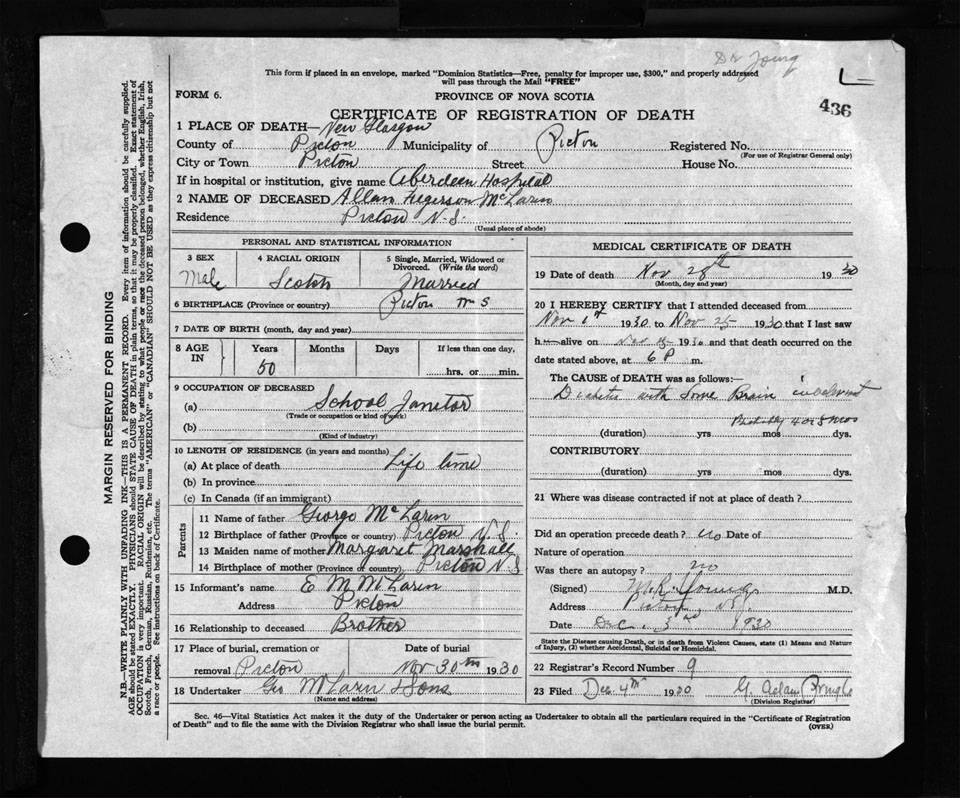 Dr Young
This form if placed in an envelope, marked "Dominion Statistics—Free, penalty for improper use, $300," and properly addressed
will pass through the Mail "FREE"
FORM 6.
PROVINCE OF NOVA SCOTIA
436
CERTIFICATE OF REGISTRATION OF DEATH
1 PLACE OF DEATH— New Glasgow
County of Pictou Municipality of Pictou Registered No.
(For use of Registrar General only)
City or Town Pictou Street House No.
If in hospital or institution, give name Aberdeen Hospital
2 NAME OF DECEASED Allan McLaren
Residence Pictou N.S.
(Usual place of abode)
PERSONAL AND STATISTICAL INFORMATION
3 SEX 4 RACIAL ORIGIN 5 Single, Married, Widowed or
Divorced. (Write the word)
Male Scotch Married
6 BIRTHPLACE (Province or country) Pictou N S
7 DATE OF BIRTH (month, day and year)
8 AGE IN Years Months Days If less than one day,
50 hrs. or min.
9 OCCUPATION OF DECEASED
(a) School Janetor
(Trade or occupation or kind of work)
(b)
(Kind of industry)
10 LENGTH OF RESIDENCE (in years and months)
(a) At place of death Life time
(b) In province
(c) In Canada (if an immigrant)
Parents
11 Name of father George McLaren
12 Birthplace of father (Province or country) Pictou N.S.
13 Maiden name of mother Margaret Marshall
14 Birthplace of mother (Province or country) Pictou N.S
15 Informant's name E M McLaren
Address Pictou
16 Relationship to deceased Brother
17 Place of burial, cremation or Date of burial
removal Pictou Nov 30th 1930
18 Undertaker Geo McLaren & Sons
(Name and address)
MEDICAL CERTIFICATE OF DEATH
19 Date of death Nov 28th 1930
(Month, day and year)
20 I HEREBY CERTIFY that I attended deceased from
Nov 1st 1930 to Nov 25 1930 that I last saw
h alive on Nov 1930 and that death occurred on the
date stated above, at 6 P m.
The CAUSE of DEATH was as follows:—
with Some Brain
Probably 4 or 5 mos
(duration) yrs mos dys.
CONTRIBUTORY
(duration) yrs. mos. dys.
21 Where was disease contracted if not at place of death?
Did an operation precede death? no Date of
Nature of operation
Was there an autopsy? no
(Signed) M.R. Young M.D.
Address Pictou, N.S.
Date Dec. 3rd 1930
State the Disease causing Death, or in death from Violent Causes, state (1) Means and Nature
of Injury, (2) whether Accidental, Suicidal or Homicidal.
22 Registrar's Record Number 9
23 Filed Dec 4th 1930 G. Adam
(Division Registrar)
Sec. 46—Vital Statistics Act makes it the duty of the Undertaker or person acting as Undertaker to obtain all the particulars required in the "Certificate of Registration
of Death" and to file the same with the Division Registrar who shall issue the burial permit. (OVER)
MARGIN RESERVED FOR BINDING
N.B.—WRITE PLAINLY WITH UNFADING INK—THIS IS A PERMANENT RECORD. Every item of information should be carefully supplied.
AGE should be stated EXACTLY. PHYSICIANS should STATE CAUSE OF DEATH in plain terms, so that it may be properly classified. Exact statement of
OCCUPATION is very important. RACIAL ORIGIN will be described by stating to what people or race the deceased person belonged, whether English, Irish,
Scotch, French, German, Russian, Ruthenian, etc. The terms "AMERICAN" or "CANADIAN" SHOULD NOT BE USED as they express citizenship but not
a race or people. See instructions on back of Certificate.